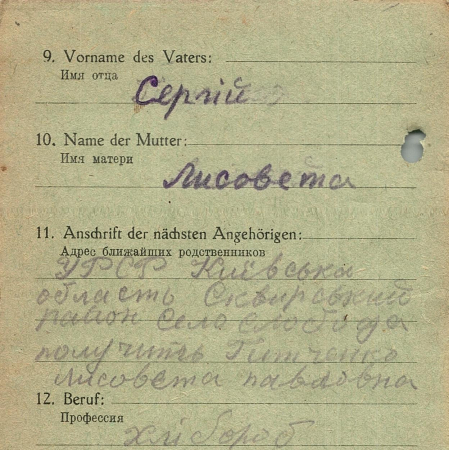 9. Vorname des Vaters:
Имя отца
Сергій
10. Name der Mutter:
Имя матери
Лисовета
11. Anschrift der nächsten Angehörigen:
Адрес ближайших родственников
УРСР Київська
область Сквирский
район село слобода
получить Гитченко
Лисовета павловна
12. Beruf:
Профессия
хлібороб